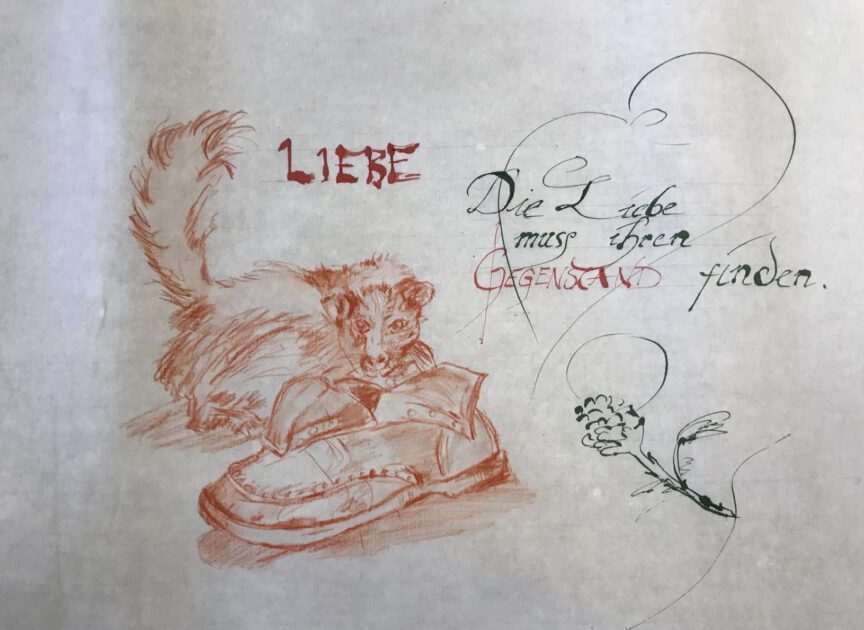 LIEBE
Die Liebe
muss ihren
GEGENSTAND finden.